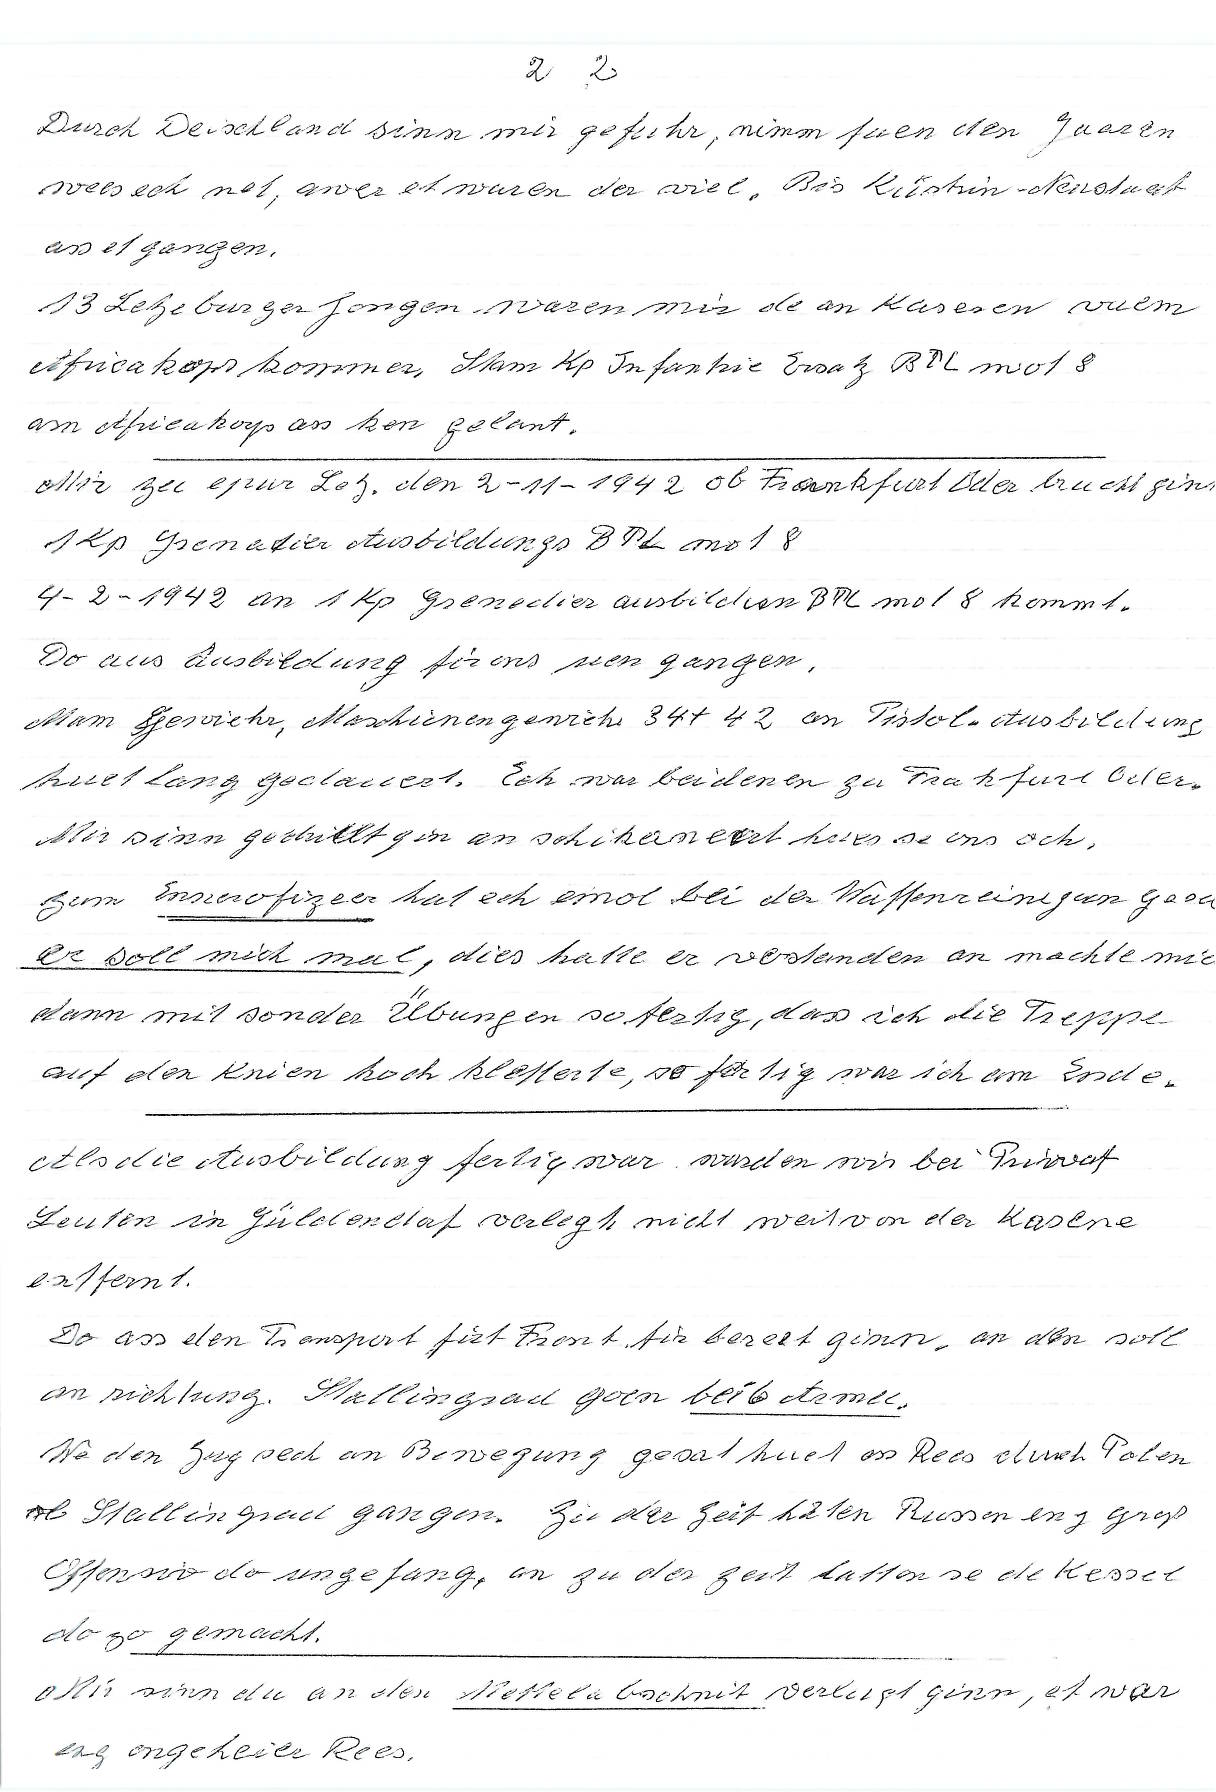 2 2
Durch Deischland sinn mir gefuhr, nimm fuen den Gaaren
wees ech net, awer et waren der viel. Bis Küstrin-Neustaat
ass et gangen.
13 Letzeburger Jongen waren mir de an Kaseren vuem
Africakops kommen, Stam Kp Infantrie Ersatz BTL mot 8
am Africakops ass ken gelant.
Mir zu epur Letz. den 2-11-1942 ob Frankfurt Oder brucht gin
1 Kp Grenadier Ausbildungs BTL mot 8
4-2-1942 an 1 Kp Grenedier ausbildun BTL mot 8 kommt.
Do aus Ausbildung fir ons uen gangen.
Mam Gewiehr, Maschienengewiehr 34+42 an Pistol. Ausbildung
huet lang gedauert. Ech war bei denen zu Frakfurt Oder.
Mir sinn gedrillt gin an schikaneert hues se ons och.
Zum Ennerofizeer hat ech eimol bei der Waffenreinigun
er soll mich mal, dies hatte er verstanden an machte
dann mit sonder Übungen so fertig, dass ich die Treppe
auf den Knien hoch kletterte, so fertig war ich am Ende.
Als die Ausbildung fertig war wurden wir bei Privat
Leuten in Güldendaf verlegt nicht weit von der Kaserne
entfernt.
Do ass den Transport firt Front fir bereet ginn, an den soll
an richtung. Stallingrad goen bei 6 Armee.
We den Zug sech an Bewegung gesat huet ass Rees durch Polen
ob Stallingrad gangen. Zu der Zeit häten Russen eng groß
Offensiv do ungefang, an zu der Zeit hatten se de Kessel
do zo gemacht.
Mir sinn du an den Mettelabschnit verlugt ginn, et war
eng ongeheier Rees.